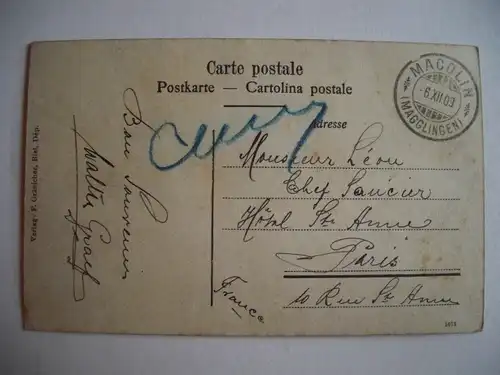 Carte postale
Postkarte — Cartolina postale
Adresse
MACOLIN
-6.XII.09
(MAGGLINGEN)
Bon Souvenir
Walter Graef
Monsieur Léon
Chef Saucier
Hôtel Ste Anne
Paris
10 Rue Ste Anne
France
Verlag - F. Gränicher, Biel, Dép.